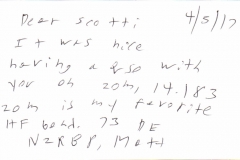 Dear Scotti 4/5/17
It was nice
having a QSO with
you on 20m, 14.183
20m is my favorite
HF band. 73 DE
N2RBP, Matt